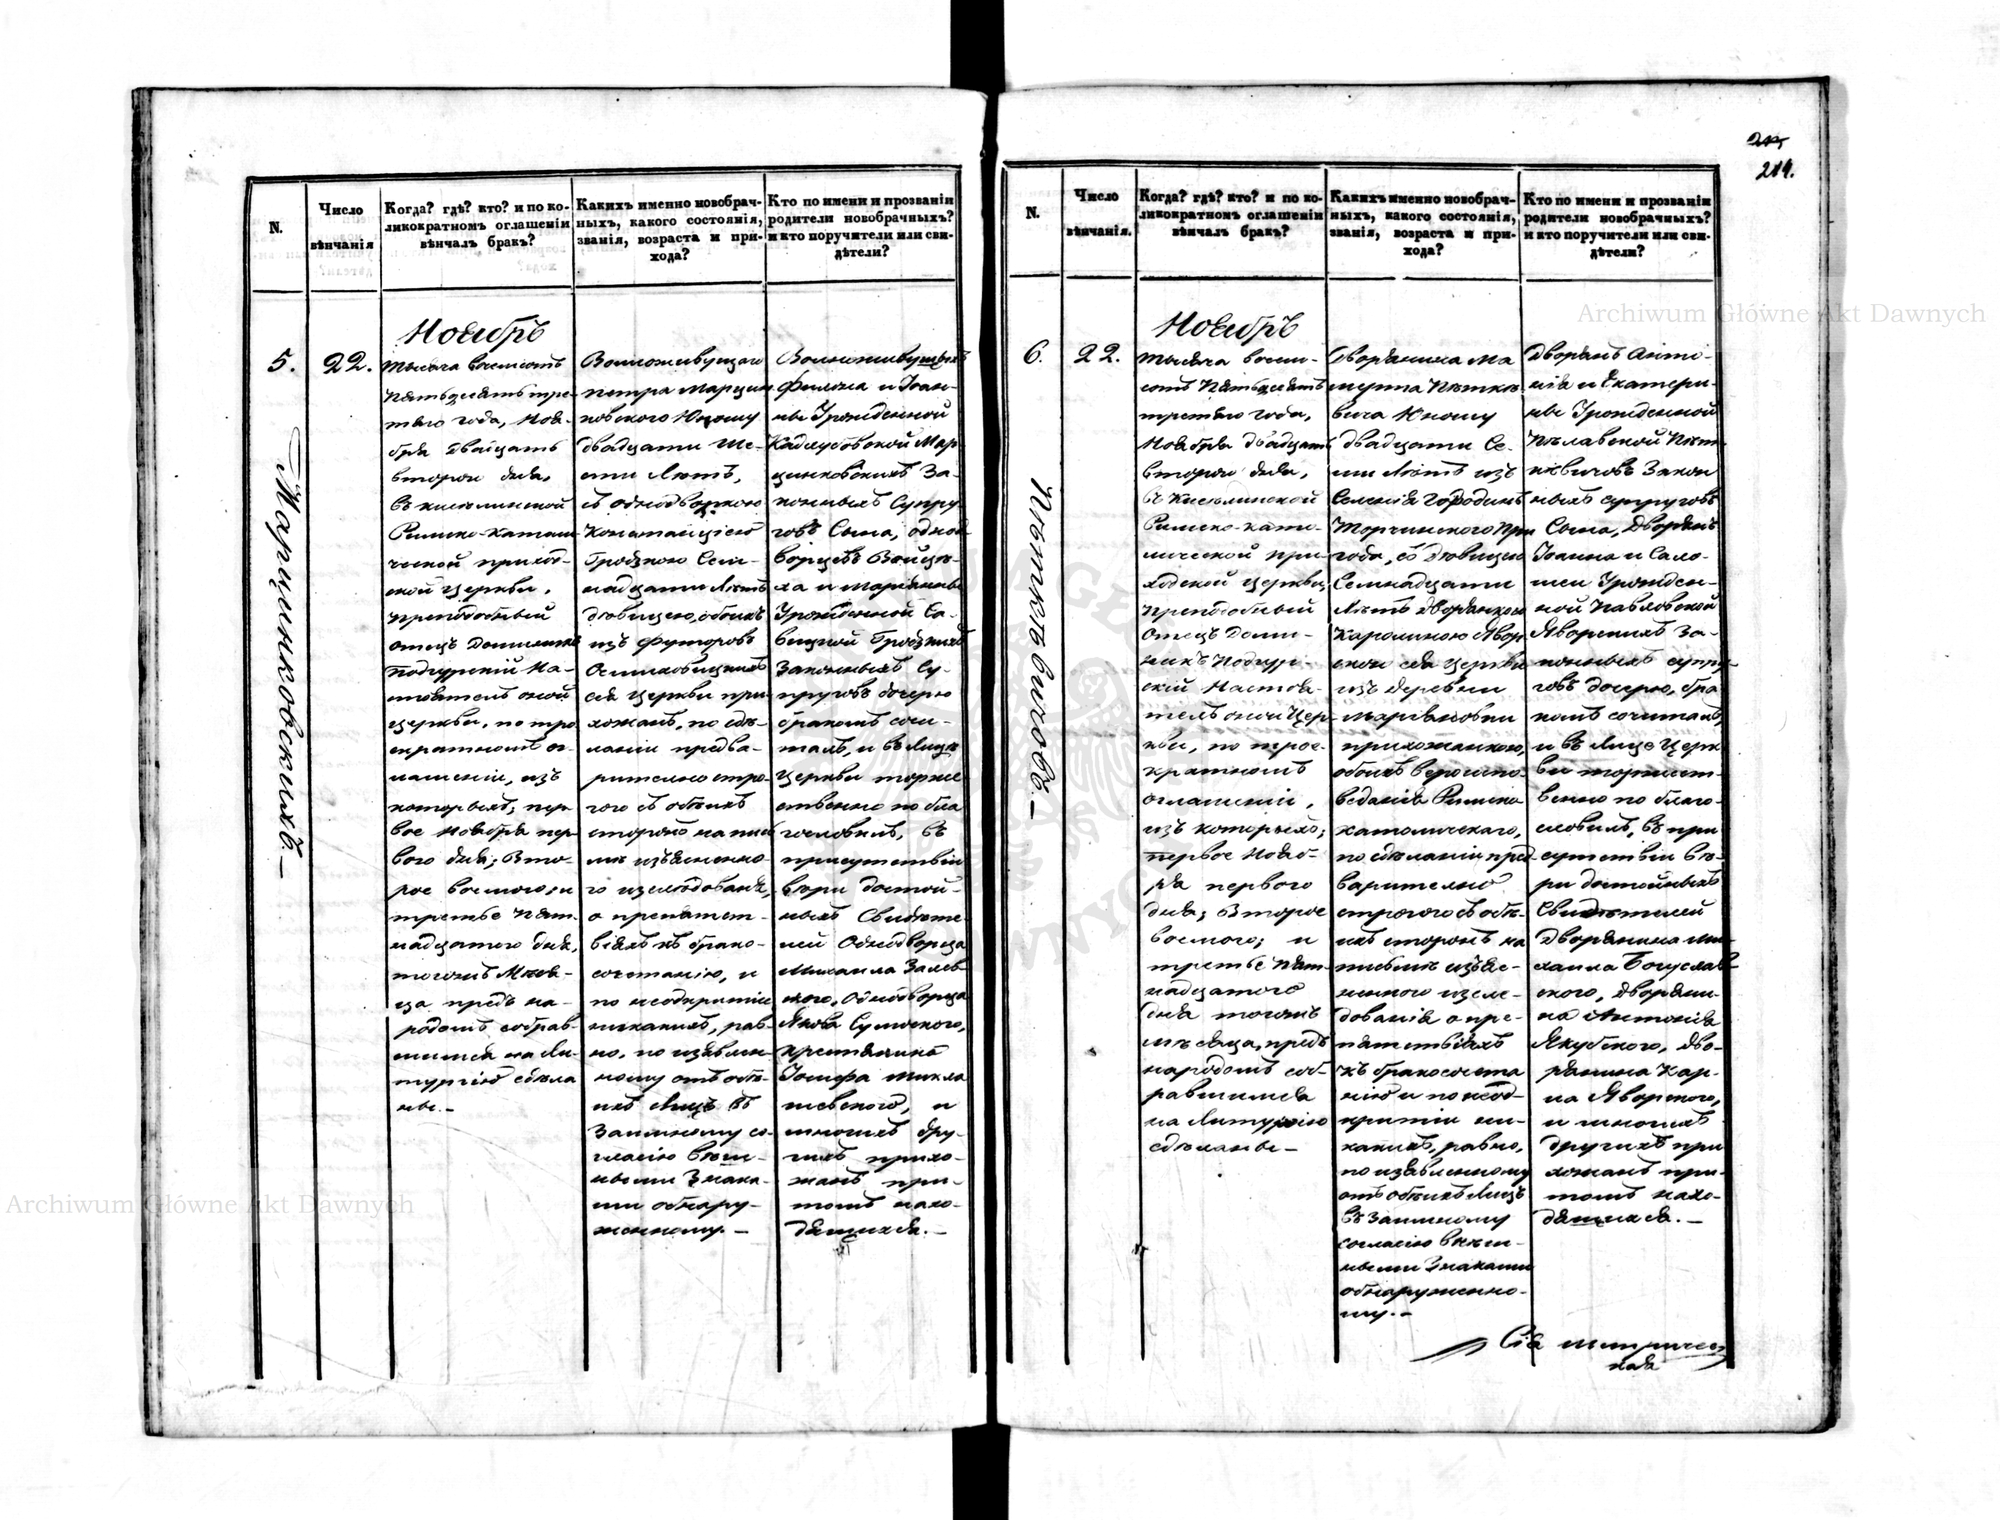 215
214.
N.
Число
вѣнчанія
Когда? гдѣ? кто? и по ко-
ликократномъ оглашеніи
вѣнчалъ бракъ?
Какихъ именно новобрач-
ныхъ, какого состоянія,
званія, возраста и при-
хода?
Кто по имени и прозванію
родители новобрачныхъ?
и кто поручители или сви-
дѣтели?
5.
22.
Марцинковскихъ.—
Ноябрь
тысяча восемьсотъ
пятьдесятъ тре-
тьяго года, Ноя-
бря двадцать
втораго дня,
въ киселинской
Римско-катали-
ческой приход-
ской церкви,
преподобный
отецъ Доминикъ
Подгурскій На-
стоятель оной
церкви, по трое
кратномъ о-
глашеніи, изъ
которыхъ; пер
вое Ноября пер-
ваго дня; вто-
рое восьмаго; и
третье пят-
надцатого дня,
тогожъ Мѣся-
ца предъ на-
родомъ собрав-
шимся на Ли-
тургію сдѣла
ны.—
Вольноживущаго
петра Марцин
ковского Юношу
двадцати ше-
сти Лѣтъ,
съ однодворкою
Констанціею
Гродзкою Сем-
надцати Лѣтъ
дѣвицею, обоихъ
изъ футоровъ
сея церкви при
хожанъ, по сдѣ-
ланіи предва-
рительно стро-
гого съ обѣихъ
сторонъ на пись
мѣ изъясненно-
го изслѣдованія,
о препятст-
віяхъ къ брако-
сочетанію, и
по неоткрытіи
никакихъ, рав-
но, по изъявлен-
ному отъ обѣ-
ихъ Лицъ въ
Заимному со-
гласію внѣш-
ными Знака-
ми обнару-
женному.—
Вольноживущихъ
Филона и Іоан-
ны Урожденной
Кадлубовской Мар
цинковскихъ За-
конныхъ Супру
говъ Сына, однод
ворцевъ Войцѣ-
ха и Маріянны
Урожденной Са-
вицкой Гродзкихъ
Законныхъ Су-
пруговъ дочерю
бракомъ соче-
талъ, и въ Лицѣ
Церкви торже
ственно по бла
гословилъ, въ
присутствіи
вѣри достой-
ныхъ Свидѣте-
лей Однодворца
Михаила Залев-
ского, Однодворца
Якова Сумского,
крестьянина
Іосифа Микла
шевского, и
многихъ дру-
гихъ прихо-
жанъ при-
томъ нахо-
дящихся.—
N.
Число
вѣнчанія.
Когда? гдѣ? кто? и по ко-
ликократномъ оглашеніи
вѣнчалъ бракъ?
Какихъ именно новобрач-
ныхъ, какого состоянія,
званія, возраста и при-
хода?
Кто по имени и прозванію
родители новобрачныхъ?
и кто поручители или сви-
дѣтели?
6.
22.
Пѣткѣвичовъ.—
Ноябрь
тысяча восемь-
сотъ пятьдесятъ
третьяго года,
Ноября двадцать
втораго дня,
въ Киселинской
Римско-като-
лической при-
ходской церкви,
преподобный
Отецъ Доми-
никъ Подгур-
скій Настоя-
тель оной Цер-
кви, по трое-
кратномъ
оглашеніи,
изъ которыхъ;
первое Нояб-
ря первого
дня; второе
восьмого; и
третье пят-
надцатого
дня тогожъ
мѣсяца, предъ
народомъ соб-
равшимся
на Литургію
сдѣланы—
Дворянина Ма
теуша Пѣткѣ
вича Юношу
двадцати Се-
ми Лѣтъ изъ
Селенія Городинъ
Торчинского При
хода, съ Дѣвицею
Семнадцати
Лѣтъ Дворянкою
Каролиною Явор
скою сея церкви
изъ деревни
Маріяновки
прихожанкою,
обоихъ вероиспо-
веданія Римско
католическаго,
по сдѣланіи пред
варительно
строгого съ обѣ-
ихъ сторонъ на
письмѣ изъяс-
ненного изслѣ-
дованія о пре-
пятствіяхъ
къ бракосочета
нію и по неод-
крытіи ни-
какихъ, равно,
по изъявленному
отъ обѣихъ Лицъ
въ Заимному
согласію внѣш-
ными Знаками
обнаруженно-
му.—
Дворянъ Анто-
нія и Екатери-
ны Урожденной
Пѣт-
кѣвичовъ Закон
ныхъ супруговъ
Сына, Дворянъ
Іоанна и Сало-
меи Урожден-
ной Павловской
Яворскихъ За-
конныхъ супру-
говъ дочерю, бра-
комъ сочеталъ,
и въ Лицѣ Церк
ви торжест-
венно по благо-
словилъ, въ при
сутствіи вѣ-
ри достойныхъ
Свидѣтелей
Дворянина Ми-
хаила Богуслав-
ского, Дворяни-
на Антонія
Якубского, Дво-
рянина Кар-
ла Яворского,
и многихъ
другихъ при
хожанъ при-
томъ нахо-
дящихся.—
Сія метричес
кая
Archiwum Główne Akt Dawnych
Archiwum Główne Akt Dawnych